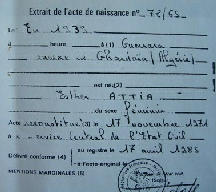 Extrait de l'acte de naissance n° 72/69
Le En 1933
à heure
annexe de Ghardaïa (Algérie)
est né(e)
Esther ATTIA
du sexe féminin
Acte reconstitué le 17 novembre 1971
service central de l'Etat Civil
au registre le 17 avril 1985
Délivré conforme (4)
à l'acte original
MENTIONS MARGINALES (5)